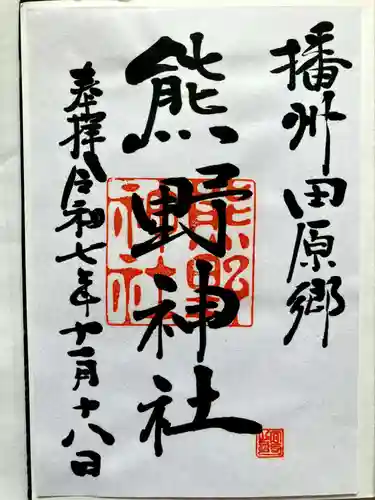 播州田原郷
熊野神社
熊野神社
奉拝令和七年十一月十八日